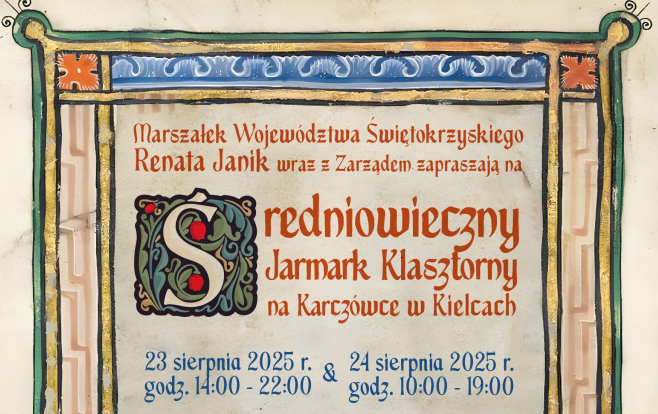 Marszałek Województwa Świętokrzyskiego
Renata Janik wraz z Zarządem zapraszają na
Średniowieczny
Jarmark Klasztorny
na Karczówce w Kielcach
23 sierpnia 2025 r. & 24 sierpnia 2025 r.
godz. 14:00 - 22:00 godz. 10:00 - 19:00